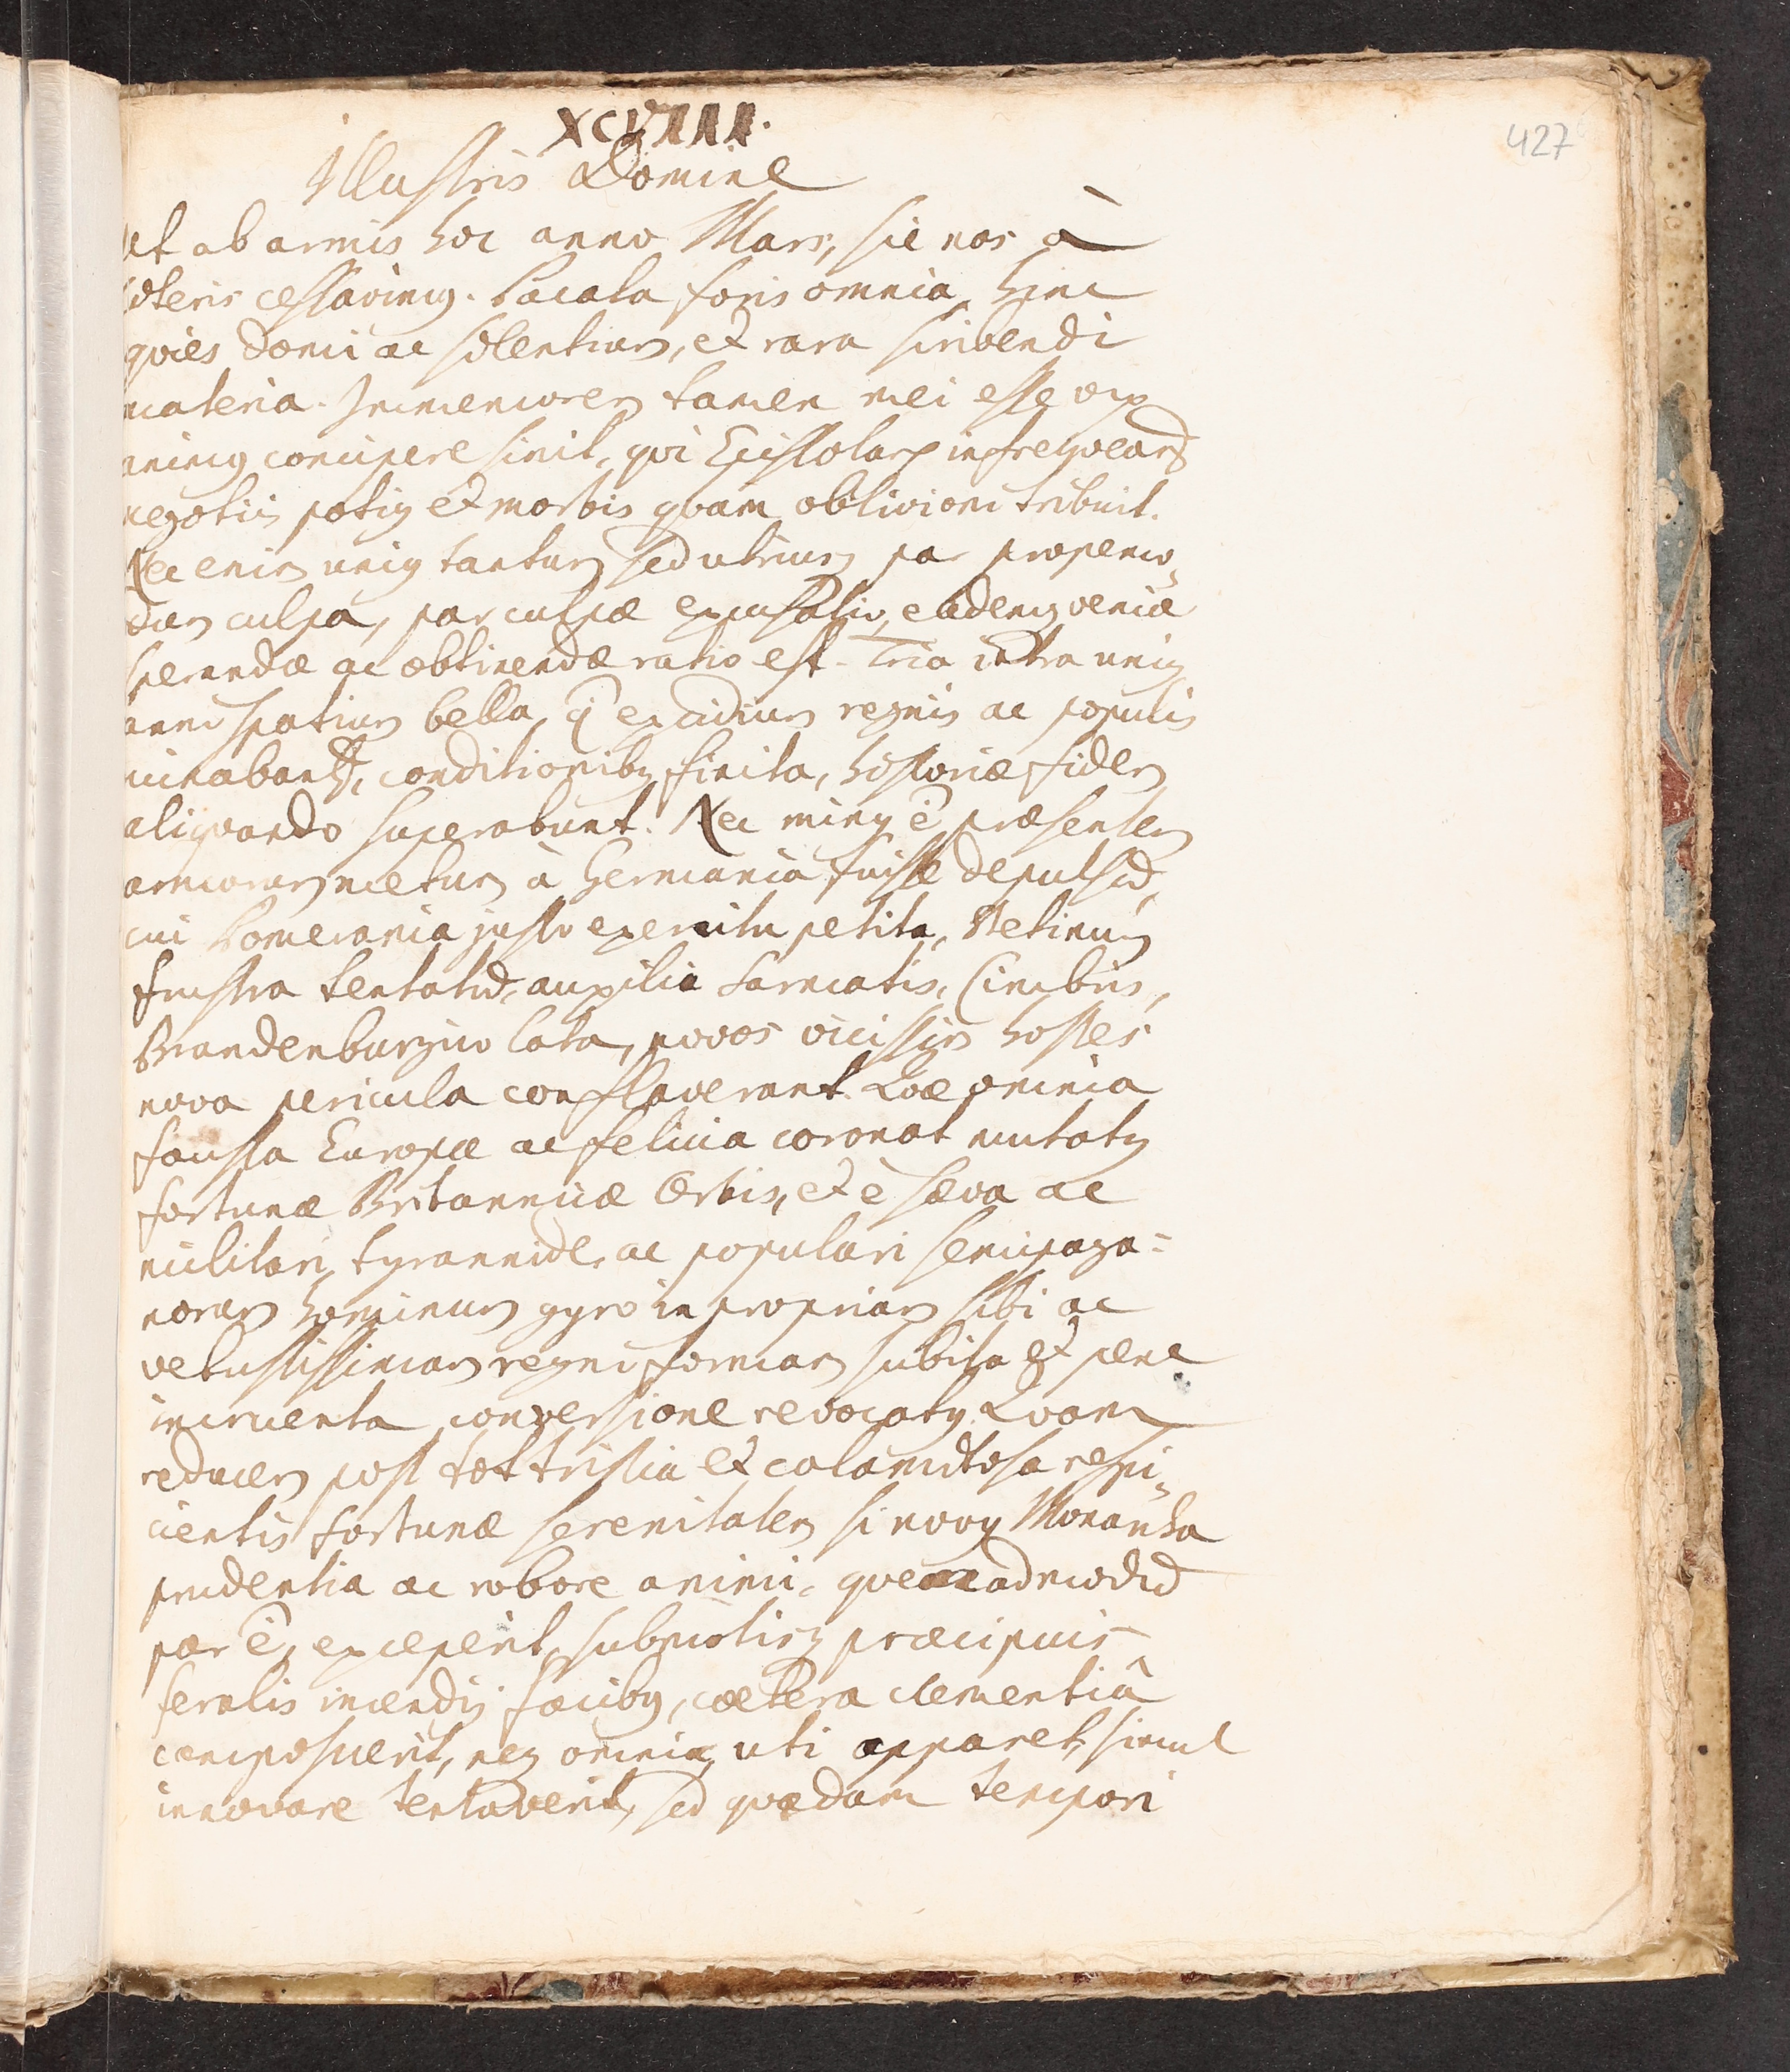 XCVIII.
427
Illustris Domine
ut ab armis hoc anno Mars, sic nos à
literis cessavimꝰ. Pacata foris omnia, hinc
qvies domi ac silentium, et rara scribendi
materia. Immemorem tamen mei esse vix
animꝰ concipere sinit, qvi Epistolarꝝ infreqventiā
negotiis potiꝰ et morbis qvam oblivioni tribuit.
Nec enim uniꝰ tantum sed utrinqꝫ par propemo„
dum culpa, par culpæ excusatio, eademqꝫ veniæ
sperandæ ac obtinendæ ratio est. Tria intra uniꝰ
anni spatium bella, q̄ excidium regnis ac populis
minabantr̄, conditionibꝰ finita, historiæ fidem
aliqvando superabunt. Nec minꝰ ē præsentem
armorum metum à Germania fuisse depulsū,
cui Pomerania justo exercitu petita, Stetinum
frustra tentatū, auxilia Sarmatis, Cimbris,
Brandenburgico lata, novos vicissim hostes
nova pericula conflaverant. Qvæ omnia
fausta Europæ ac felicia coronat mutatꝰ
fortunæ Britannicæ Orbis, et è sæva ac
militari tyrannide, ac populari semipaga=
norum hominum gyro in propriam sibi ac
vetustissimam regni formam subita et pene
incruenta conversione revocatꝰ. Qvam
reducem post tot tristia et calamitosa respi„
cientis fortunæ serenitatem si novꝰ Monarcha
prudentia ac robore animi, qvemadmodū
par ē, exceperit, submotisqꝫ præcipuis
feralis incendij facibꝰ, cætera clementiâ
composuerit, neqꝫ omnia, uti apparet, simul
innovare tentaverit, sed qvædam tempori